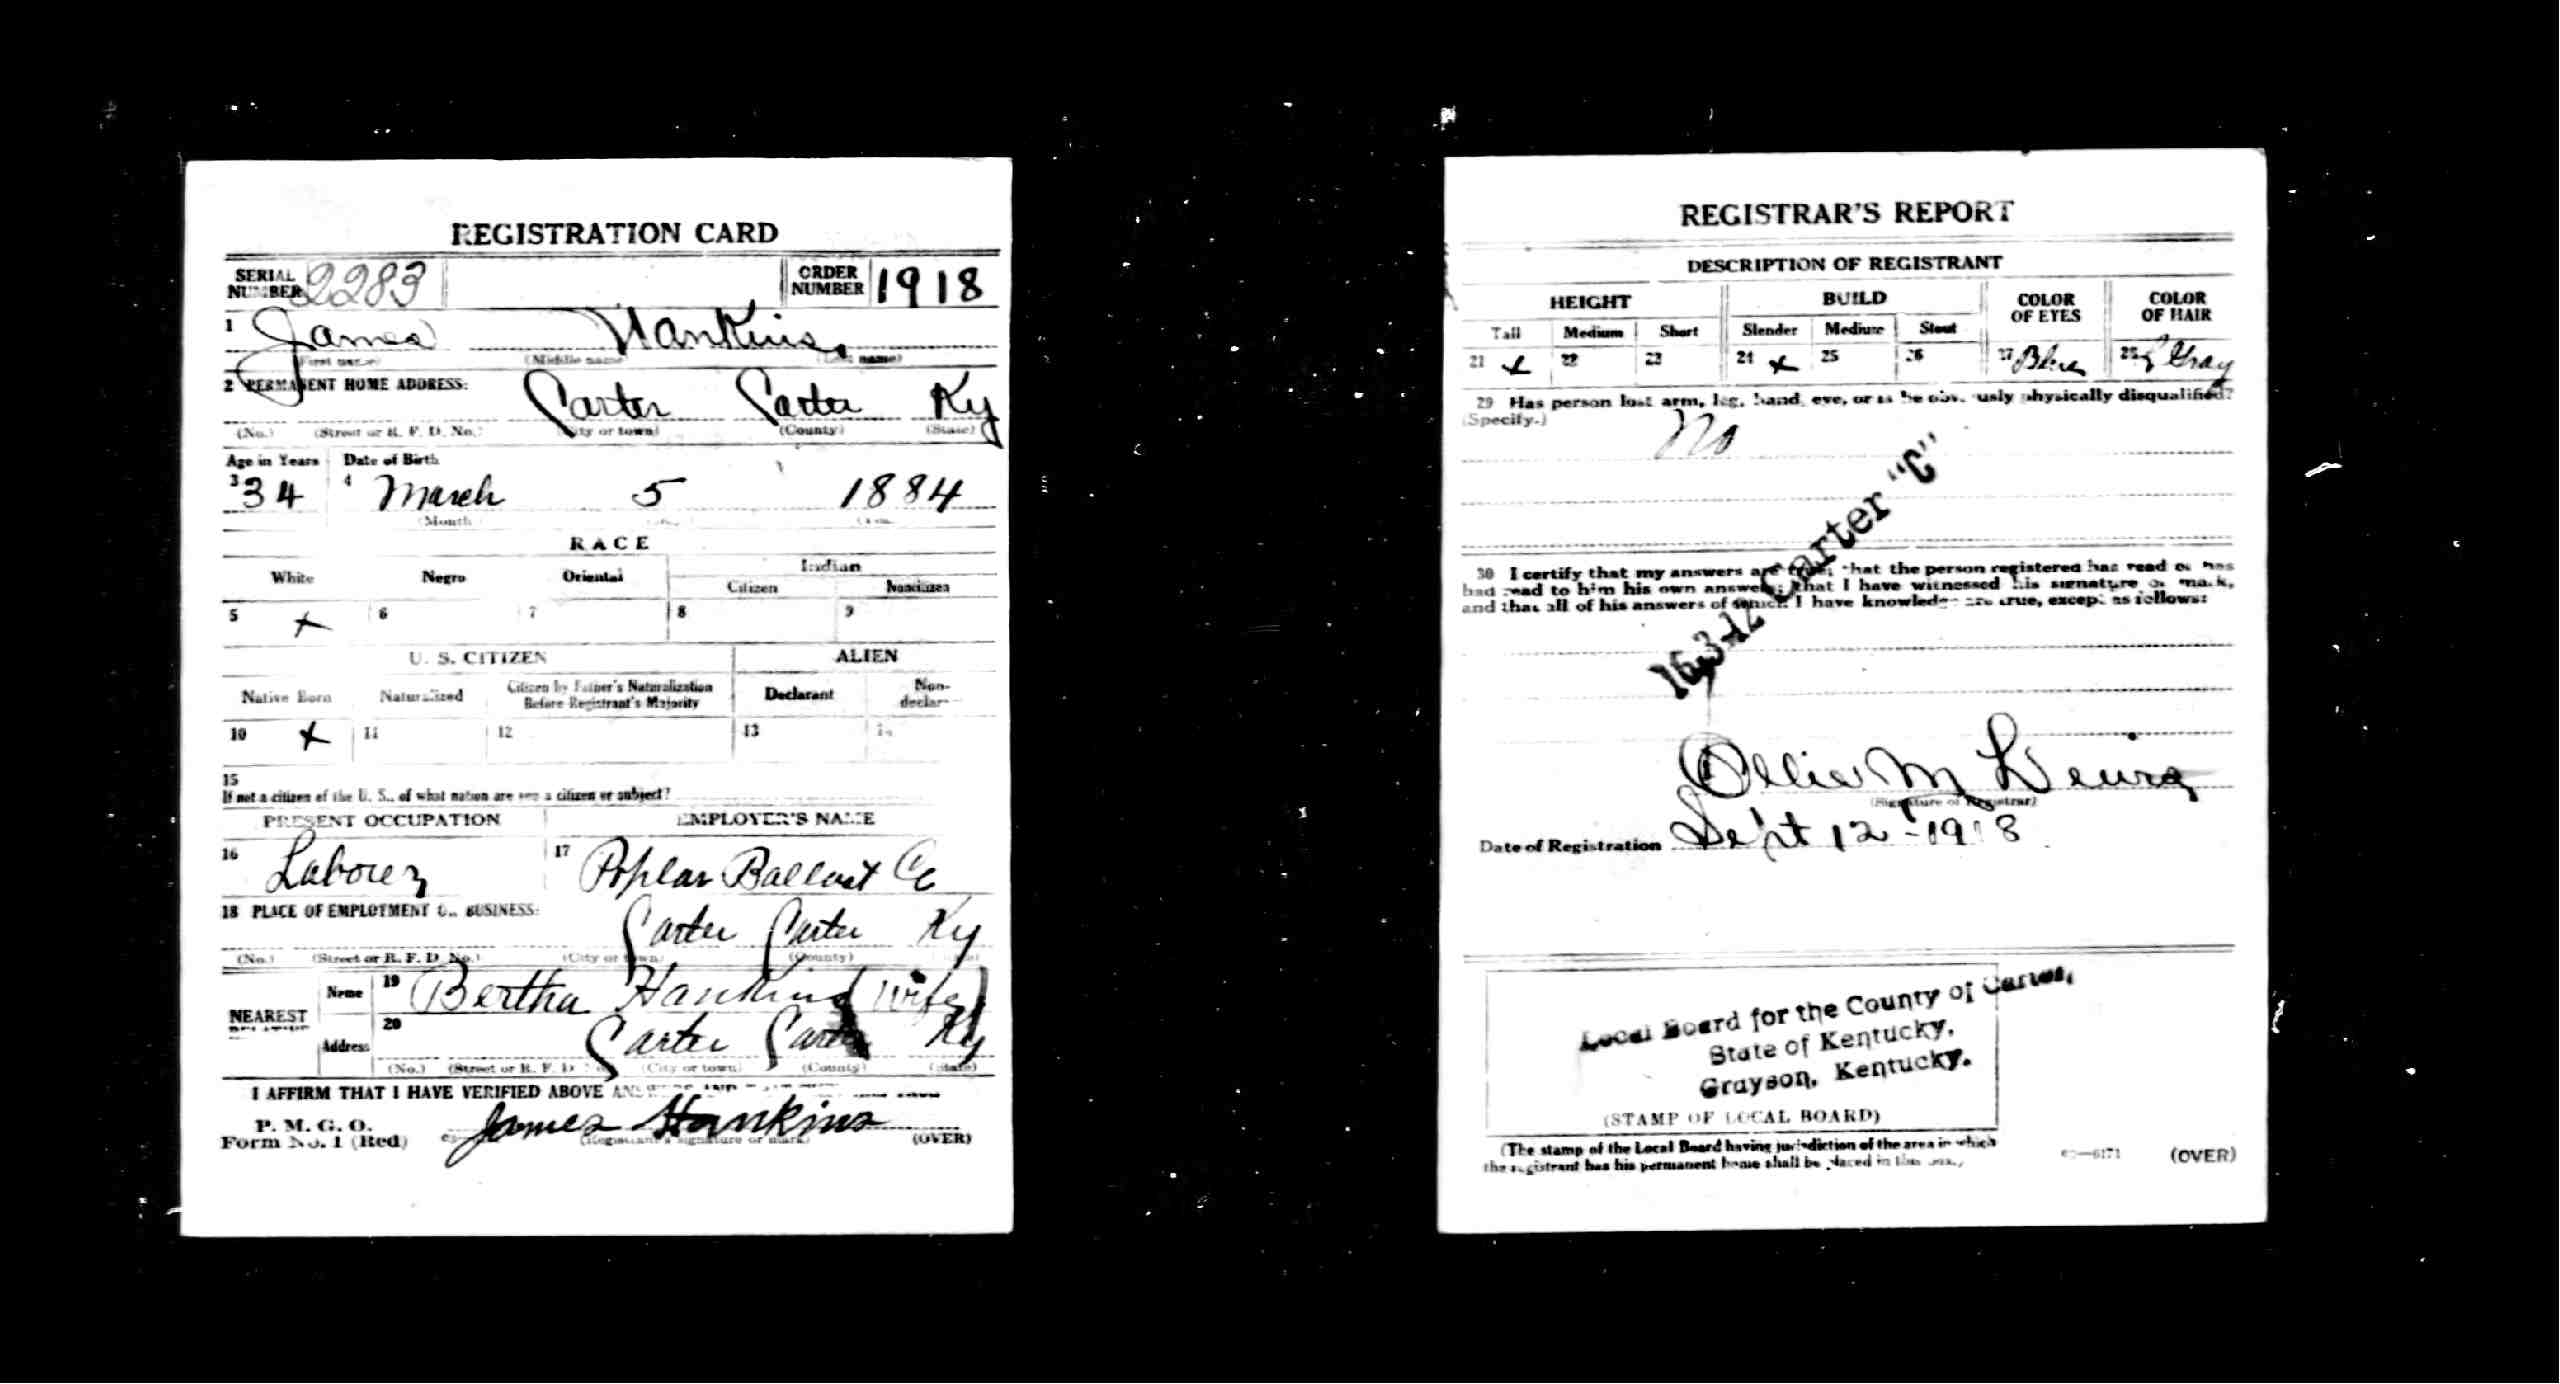 REGISTRATION CARD
SERIAL NUMBER 2283 ORDER NUMBER 1918
1 James Hankins
(First name) (Middle name) (Last name)
2 PERMANENT HOME ADDRESS:
Carter Carter Ky
(No.) (Street or R. F. D. No.) (City or town) (County) (State)
Age in Years Date of Birth
3 34 4 March 5 1884
(Month)
RACE
White Negro Oriental Indian
Citizen Noncitizen
5 x 6 7 8 9
U. S. CITIZEN ALIEN
Native Born Naturalized Citizen by Father's Naturalization Before Registrant's Majority Declarant Non-declar-
10 x 11 12 13
15
If not a citizen of the U. S., of what nation are you a citizen or subject?
PRESENT OCCUPATION EMPLOYER'S NAME
16 Laborer 17 Poplar Ballast Co
18 PLACE OF EMPLOYMENT OR BUSINESS:
Carter Carter Ky
(No.) (Street or R. F. D. No.) (City or town) (County)
NEAREST RELATIVE
Name 19 Bertha Hankins (Wife)
Address 20 Carter Carter Ky
(No.) (Street or R. F. D. No.) (City or town) (County) (State)
I AFFIRM THAT I HAVE VERIFIED ABOVE ANSWERS AND
P. M. G. O.
Form No. 1 (Red) James Hankins (OVER)
(Registrant's signature or mark)
REGISTRAR'S REPORT
DESCRIPTION OF REGISTRANT
HEIGHT BUILD COLOR OF EYES COLOR OF HAIR
Tall Medium Short Slender Medium Stout
21 x 22 23 24 x 25 26 27 Blue 28 Gray
29 Has person lost arm, leg, hand, eye, or is he obviously physically disqualified?
(Specify.) No
16-3-12 Carter "C"
30 I certify that my answers are true; that the person registered has read or has
had read to him his own answers; that I have witnessed his signature or mark,
and that all of his answers of which I have knowledge are true, except as follows:
Ollie M
(Signature of Registrar)
Date of Registration Sept 12 - 1918
Local Board for the County of Carter,
State of Kentucky,
Grayson, Kentucky.
(STAMP OF LOCAL BOARD)
(The stamp of the Local Board having jurisdiction of the area in which
the registrant has his permanent home shall be placed in this box.)
(OVER)